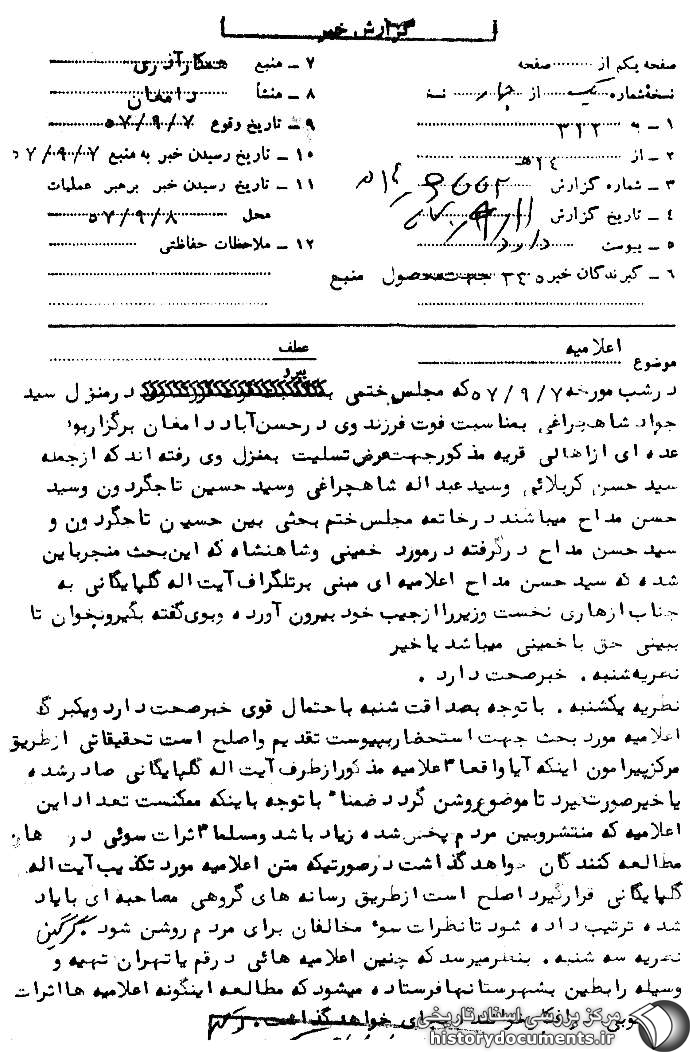 گزارش خبر
صفحه یکم از صفحه
نسخه شماره یک از چهار نسخه
۱ ـ به ۳۲۲
۲ ـ از ۲۴هـ
۳ ـ شماره گزارش
۴ ـ تاریخ گزارش
۵ ـ پیوست دارد
۶ ـ گیرندگان خبر ۳۴۵ جهت محصول منبع
۷ ـ منبع همکار آذری
۸ ـ منشأ دامغان
۹ ـ تاریخ وقوع ۵۷/۹/۷
۱۰ ـ تاریخ رسیدن خبر به منبع ۵۷/۹/۷
۱۱ ـ تاریخ رسیدن خبر برهبر عملیات
محل ۵۷/۹/۸
۱۲ ـ ملاحظات حفاظتی
موضوع اعلامیه
عطف
پیرو
در شب مورخه ۵۷/۹/۷ که مجلس ختمی در منزل سید
جواد شاهچراغی بمناسبت فوت فرزند وی در حسن آباد دامغان برگزار بود
عده ای از اهالی قریه مذکور جهت عرض تسلیت بمنزل وی رفته اند که از جمله
سید حسن کربلائی وسید عبداله شاهچراغی وسید حسین تاجگردون وسید
حسن مداح میباشند در خاتمه مجلس ختم بحثی بین حسین تاجگردون و
سید حسن مداح در گرفته در مورد خمینی وشاهنشاه که این بحث منجر باین
شده که سید حسن مداح اعلامیه ای مبنی بر تلگراف آیت اله گلپایگانی به
جناب ازهاری نخست وزیر را از جیب خود بیرون آورده وبوی گفته بگیر و بخوان تا
ببینی حق با خمینی میباشد یا خیر
نظریه شنبه . خبر صحت دارد .
نظریه یکشنبه . با توجه بصداقت شنبه باحتمال قوی خبر صحت دارد ویکبرگ
اعلامیه مورد بحث جهت استحضار بپیوست تقدیم واصلح است تحقیقاتی از طریق
مرکز پیرامون اینکه آیا واقعا" اعلامیه مذکور از طرف آیت اله گلپایگانی صادر شده
یا خیر صورت گیرد تا موضوع روشن گردد ضمنا" با توجه باینکه ممکنست تعداد این
اعلامیه که منتشر وبین مردم پخش شده زیاد باشد ومسلما" اثرات سوئی در
مطالعه کنندگان خواهد گذاشت در صورتیکه متن اعلامیه مورد تکذیب آیت اله
گلپایگانی قرار گیرد اصلح است از طریق رسانه های گروهی مصاحبه ای با یاد
شده ترتیب داده شود تا نظرات سوء مخالفان برای مردم روشن شود . گرگین
نظریه سه شنبه . بنظر میرسد که چنین اعلامیه هائی در قم یا تهران تهیه و
وسیله رابطین بشهرستانها فرستاده میشود که مطالعه اینگونه اعلامیه ها اثرات
خواهد گذاشت .
مرکز بررسی اسناد تاریخی
historydocuments.ir